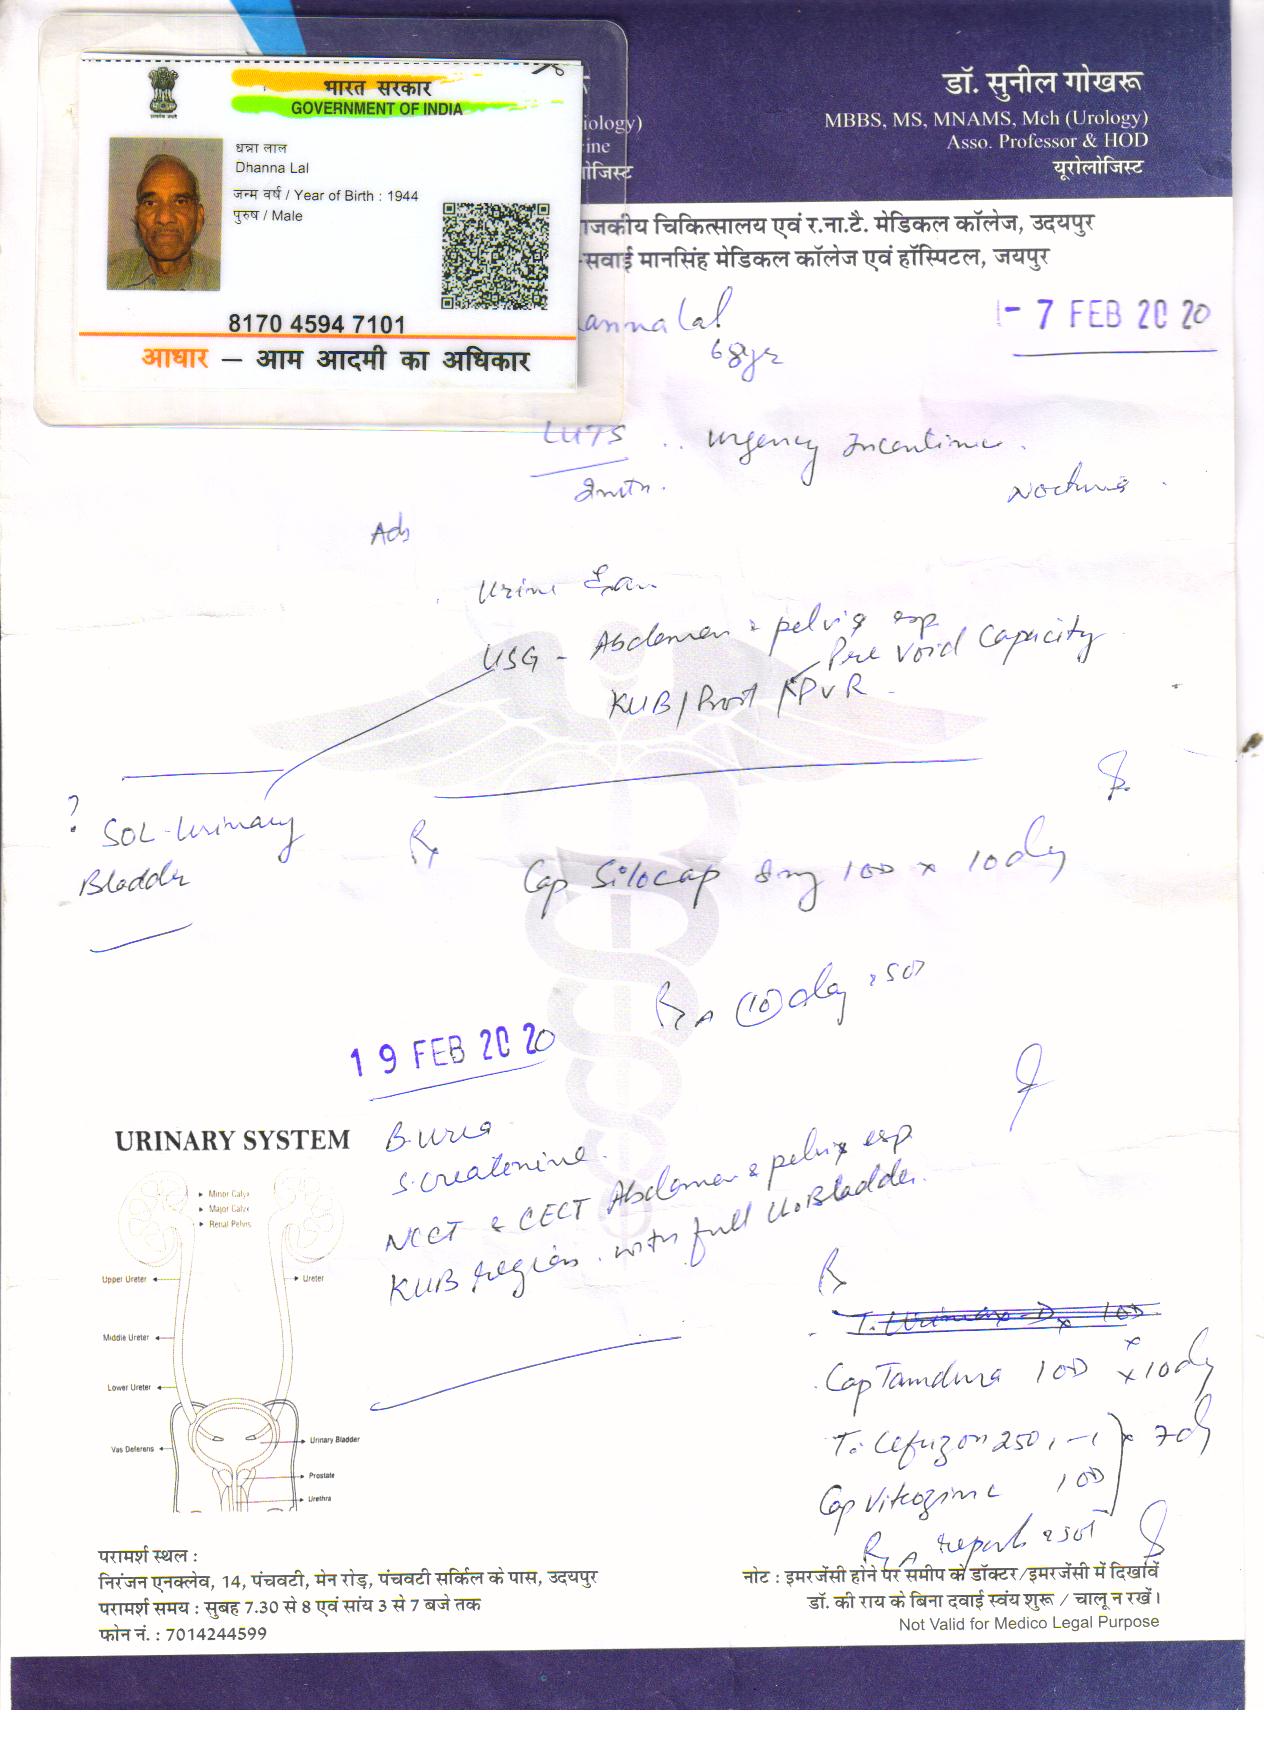 भारत सरकार
GOVERNMENT OF INDIA
धन्ना लाल
Dhanna Lal
जन्म वर्ष / Year of Birth : 1944
पुरुष / Male
8170 4594 7101
आधार – आम आदमी का अधिकार
डॉ. सुनील गोखरू
MBBS, MS, MNAMS, Mch (Urology)
Asso. Professor & HOD
यूरोलोजिस्ट
iology)
ine
ोजिस्ट
ाजकीय चिकित्सालय एवं र.ना.टै. मेडिकल कॉलेज, उदयपुर
-सवाई मानसिंह मेडिकल कॉलेज एवं हॉस्पिटल, जयपुर
anna Lal
68yr
- 7 FEB 2020
LUTS .. Urgency Incontinence.
Nocturia
Adv
Urine Exam
USG - Abdomen & pelvis esp
Pre Void Capacity
KUB / Prost / PVR
? SOL - Urinary
Bladder
Rx
Cap Silocap 8mg 1OD x 10day
R/A (10) day
19 FEB 2020
B. urea
S. creatinine.
NCCT & CECT Abdomen & pelvis esp
KUB region. with full U. Bladder.
Rx
Cap Tamdura 1OD x 10day
T. Cefuzon 250 1-1
x 7d
Cap Vitcozinc 1OD
R/A reports
URINARY SYSTEM
Minor Calyx
Major Calyx
Renal Pelvis
Upper Ureter
Ureter
Middle Ureter
Lower Ureter
Vas Deferens
Urinary Bladder
Prostate
Urethra
परामर्श स्थल :
निरंजन एनक्लेव, 14, पंचवटी, मेन रोड़, पंचवटी सर्किल के पास, उदयपुर
परामर्श समय : सुबह 7.30 से 8 एवं सांय 3 से 7 बजे तक
फोन नं. : 7014244599
नोट : इमरजेंसी होने पर समीप के डॉक्टर/इमरजेंसी में दिखावें
डॉ. की राय के बिना दवाई स्वंय शुरू / चालू न रखें।
Not Valid for Medico Legal Purpose